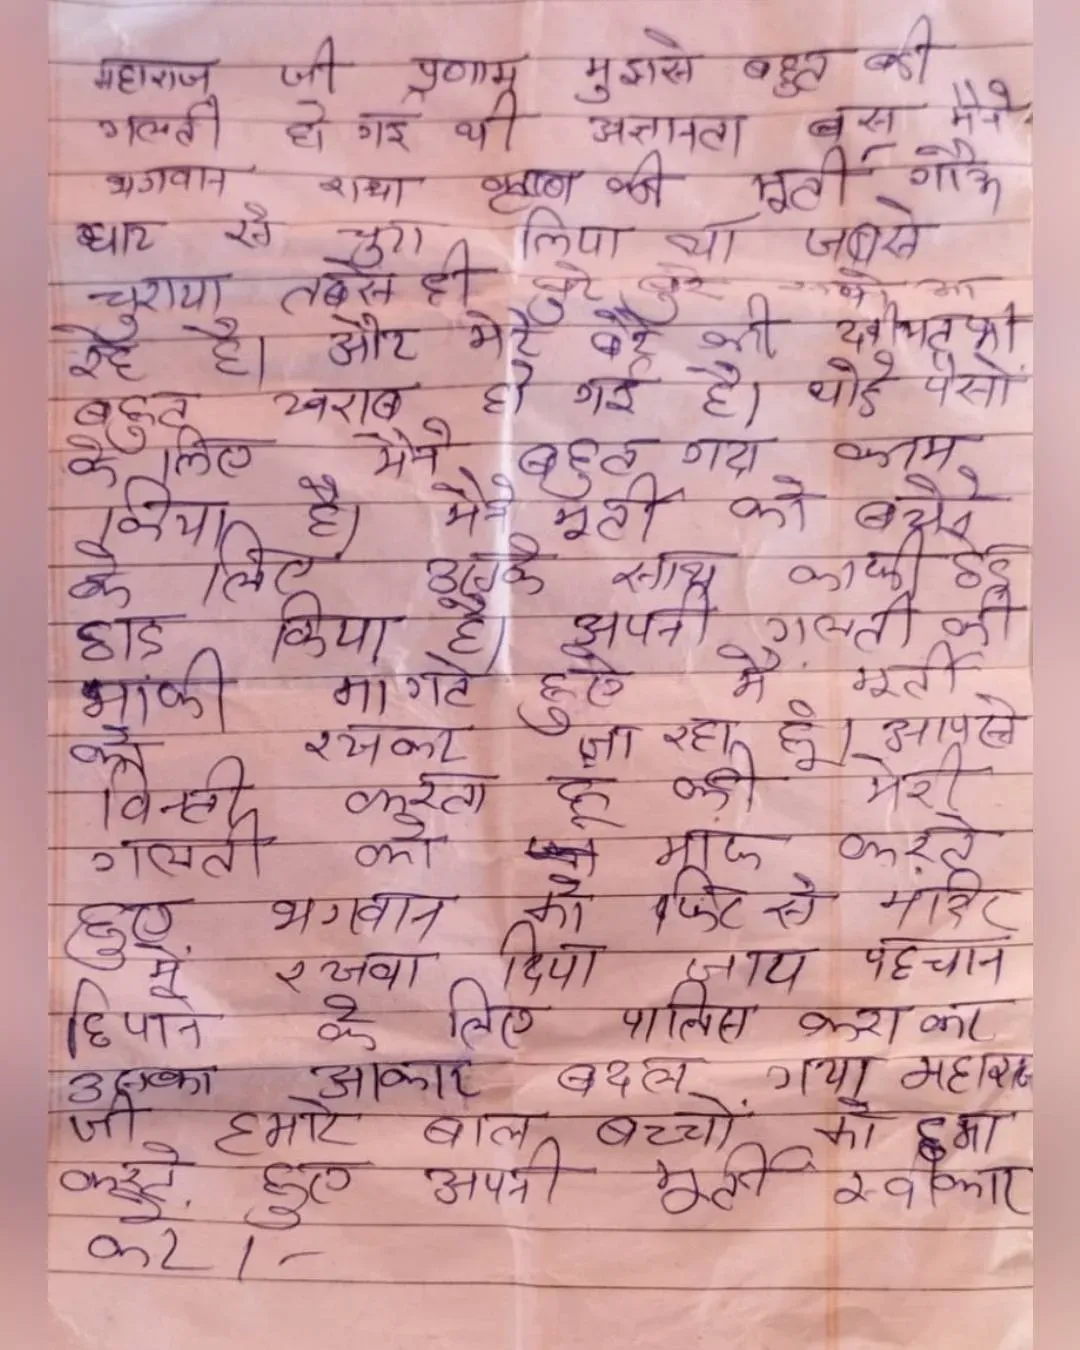 महाराज जी प्रणाम मुझसे बहुत बडी
गलती हो गई थी अज्ञानता बस मैने
भगवान राधा कृष्ण की मूर्ती गौऊ
घाट से चुरा लिया था जबसे
चुराया तबसे ही बुरे बुरे
रहे है। और मेरे बेटे की
बहुत खराब हो गई है। थोडे पैसो
के लिए मैने बहुत गदा काम
किया है। मैने मूर्ती को बचेने
के लिए उसके साथ काफी छेड़
छाड किया है। अपनी गलती की
माफी मागते हुए मै मूर्ती
को रखकर जा रहा हूं। आपसे
विनती करता हू की मेरी
गलती को माफ करते
हुए भगवान को फिर से मंदिर
में रखवा दिया जाय पहचान
छिपाने के लिए पालिस कराकर
उसका आकार बदल गया महाराज
जी हमारे बाल बच्चों को छमा
करते हुए अपनी मूर्ती स्वीकार
करे।-